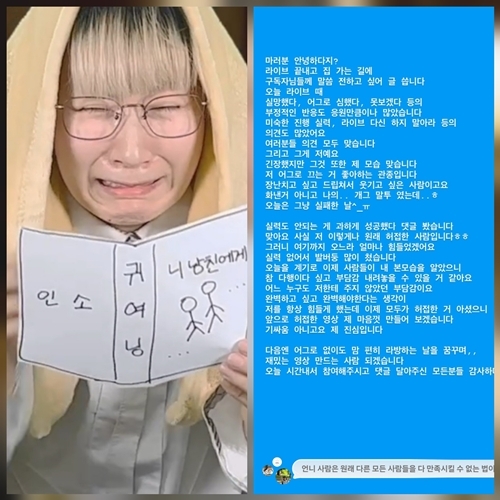 인소
귀여닝
니 남친에게
...
...
마러분 안녕하다지?
라이브 끝내고 집 가는 길에
구독자님들께 말씀 전하고 싶어 글 씁니다
오늘 라이브 때
실망했다, 어그로 심했다, 못보겠다 등의
부정적인 반응도 응원만큼이나 많았습니다
미숙한 진행 실력, 라이브 다신 하지 말아라 등의
의견도 많았어요
여러분들 의견 모두 맞습니다
그리고 그게 저예요
긴장했지만 그것 또한 제 모습 맞습니다
저 어그로 끄는 거 좋아하는 관종입니다
장난치고 싶고 드립쳐서 웃기고 싶은 사람이고요
화낸거 아니고 나의.. 개그 말투 였는데..ㅎ
오늘은 그냥 실패한 날^_ㅠ
실력도 안되는 게 과하게 성공했단 댓글 봤습니다
맞아요 사실 저 이렇게나 원래 허접한 사람입니다ㅎㅎ
그러니 여기까지 오느라 얼마나 힘들었겠어요
실력 없어서 발버둥 많이 쳤습니다
오늘을 계기로 이제 사람들이 내 본모습을 알았으니
참 다행이다 싶고 부담감 내려놓을 수 있을 거 같아요
어느 누구도 저한테 주지 않았던 부담감이요
완벽하고 싶고 완벽해야한다는 생각이
저를 항상 힘들게 했는데 이제 모두가 허접한 거 아셨으니
앞으로 허접한 영상 제 마음껏 만들어 보겠습니다
기싸움 아니고요 제 진심입니다
다음엔 어그로 없이도 맘 편히 라방하는 날을 꿈꾸며,,
재밌는 영상 만드는 사람 되겠습니다
오늘 시간내서 참여해주시고 댓글 달아주신 모든분들 감사하
언니 사람은 원래 다른 모든 사람들을 다 만족시킬 수 없는 법이